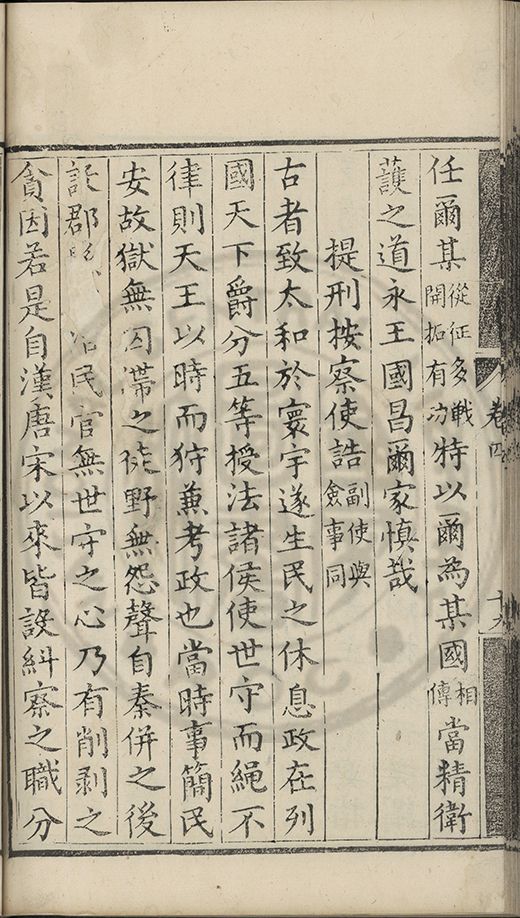 任爾某從征多戰開拓有功特以爾為某國相傳當精衛
護之道永王國昌爾家慎哉
提刑按察使誥副使與僉事同
古者致太和於寰宇遂生民之休息政在列
國天下爵分五等授法諸侯使世守而繩不
律則天王以時而狩兼考政也當時事簡民
安故獄無囚滯之徒野無怨聲自秦併之後
郡民官無世守之心乃有削剥之
貪因若是自漢唐宋以來皆設糾察之職分
卷四